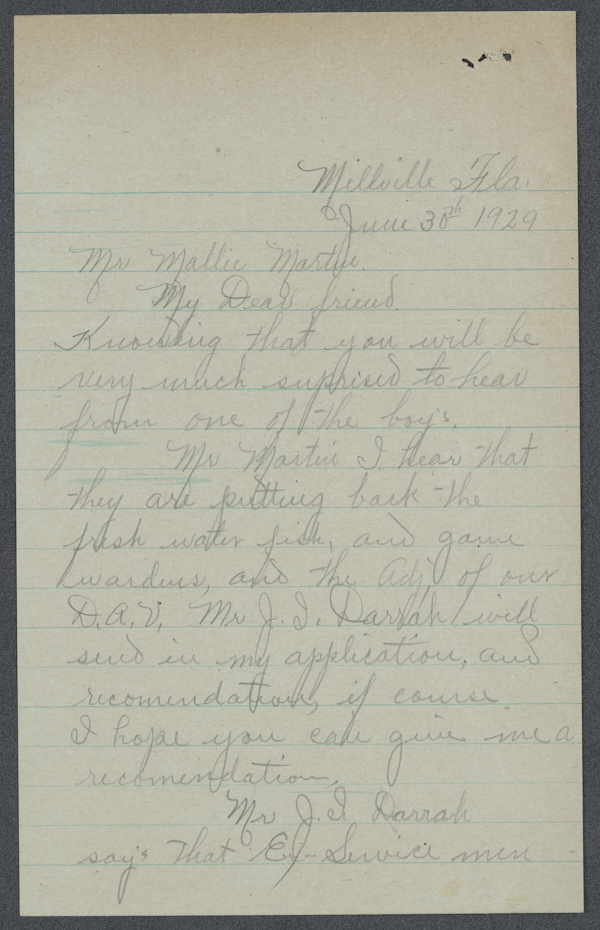 Millville Fla.
June 30th 1929
Mr Mallie Martin.
My Dear friend.
Knowing that you will be
very much suprised to hear
from one of the boy's.
Mr Martin I hear that
they are putting back the
fresh water fish, and game
wardens, and the Adj of our
D.A.V. Mr J. I. Darrah will
send in my application, and
recomendation, if course
I hope you can give me a
recomendation,
Mr J. I Darrah
say's that Ex-Service men